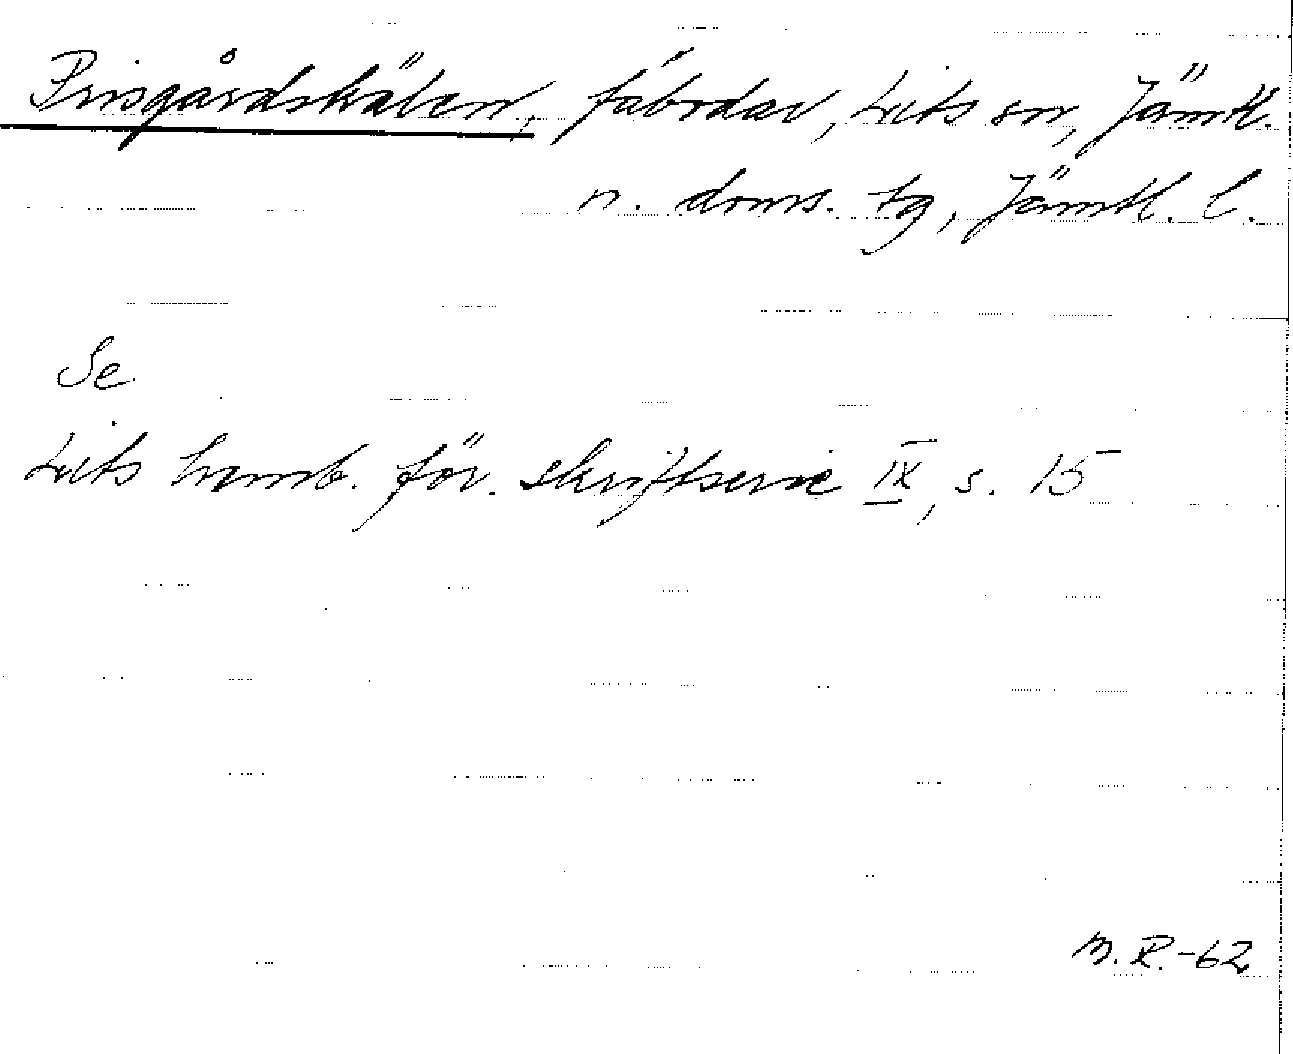 Prisgårdskälen, fäbodar, Lits sn, Jämtl.
n. doms. tg, Jämtl. l.
Se
Lits hemb. för. skriftserie IX, s. 15
M. R. -62